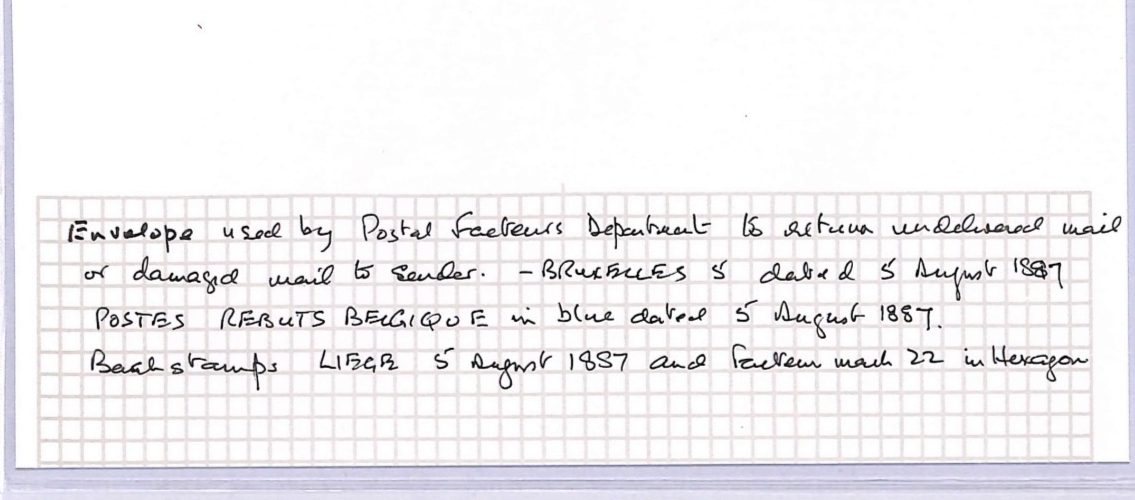 Envelope used by Postal Facteurs Department to return undelivered mail
or damaged mail to sender. - BRUXELLES 5 dated 5 August 1887
POSTES REBUTS BELGIQUE in blue dated 5 August 1887.
Backstamps LIEGE 5 August 1887 and facteur mark 22 in Hexagon